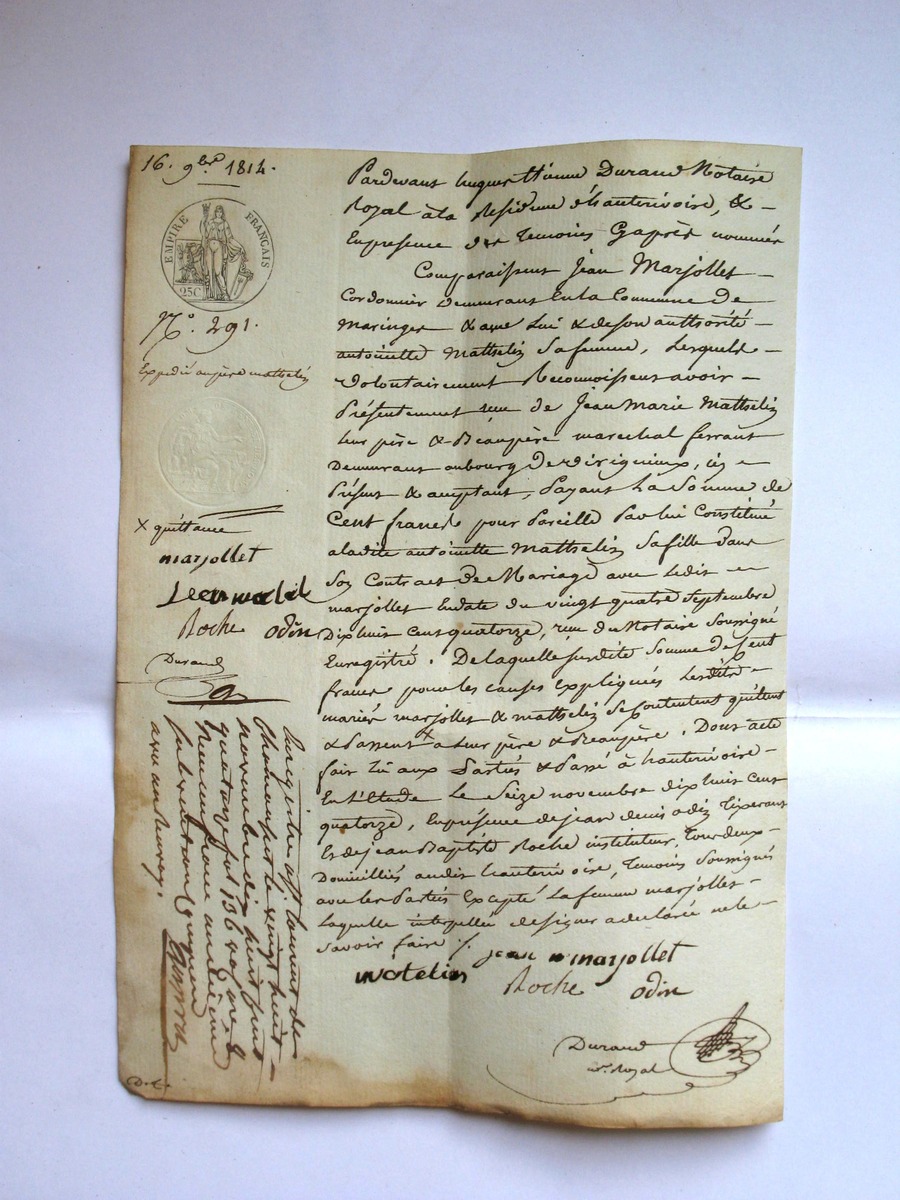 16. 9bre 1814.
EMPIRE FRANÇAIS
25C
No. 291.
Expedié au père mathelin
x quittance
marjollet
Jean
Roche odin
Durand
Pardevant hugues Etienne Durand Notaire
Royal à la Residence d'hauterivoire, & -
En presence des temoins Cy après nommés
Comparaissent Jean Marjollet -
Cordonnier Demeurant En la Commune de
Maringes & avec lui & de son authorité -
antoinette Mathelin sa femme, Lesquels -
volontairement Reconnoissent avoir -
Présentement reçu de Jean Marie Mathelin
leur père & Beaupère marechal ferrant
Demeurant au bourg de virigneux, icy -
Présent & acceptant, Payant la Somme de
Cent francs pour Pareille Par lui Constitué
a ladite antoinette Mathelin sa fille dans
son Contract de Mariage avec ledit -
marjollet En date du vingt quatre septembre
Dix huit Cent quatorze, reçu du Notaire Soussigné
Enregistré. De laquelle susdite Somme de Cent
francs pour les causes Expliqués Lesdits -
mariés marjollet & mathelin se Contentent quittent
& Passent x a leur père & Beaupère. Dont acte
fait lu aux Parties & Passé à hauterivoire -
En l'Etude Le Seize novembre dix huit Cent
quatorze, En presence de jean denis odin Tixerant
Et de jean Baptiste Roche instituteur, tous deux -
Domiciliés audit hauterivoire, temoins Soussignés
avec les Parties Excepté La femme marjollet -
Laquelle interpellée de signer a declaré ne le -
Savoir faire ./.
jean m marjollet
matelin
Roche odin
Durand
nre. Royal
Enregistré à St Laurent de
Chamousset le vingt huit -
novembre dix huit Cent
quatorze fol 136
un franc un dixième